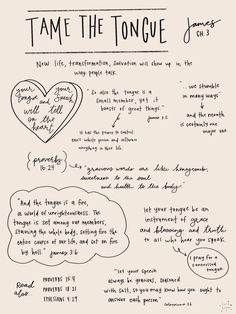 TAME THE TONGUE
James
CH. 3
New life, transformation, salvation will show up in the
way people talk.
your
tongue
and
your
speech
will tell
on
the heart
"So also the tongue is a
small member, yet it
boasts of great things."
James 3:5
it has the power to control
one's whole person and influence
everything in their life.
"we stumble
in many ways"
and the mouth
is certainly one
major one.
{proverbs
16:24}
"gracious words are like honeycomb,
sweetness to the soul
and health to the body."
"And the tongue is a fire,
a world of unrighteousness. The
tongue is set among our members,
staining the whole body, setting fire the
entire course of our life, and set on fire
by hell." James 3:6
let your tongue be an
instrument of grace
and blessing and truth
to all who hear you speak.
I pray for a
consecrated
tongue.
Read
also:
PROVERBS 15:4
PROVERBS 18:21
EPHESIANS 4:29
"let your speech
always be gracious, seasoned
with salt, so you may know how you ought to
answer each person."
Colossians 4:6